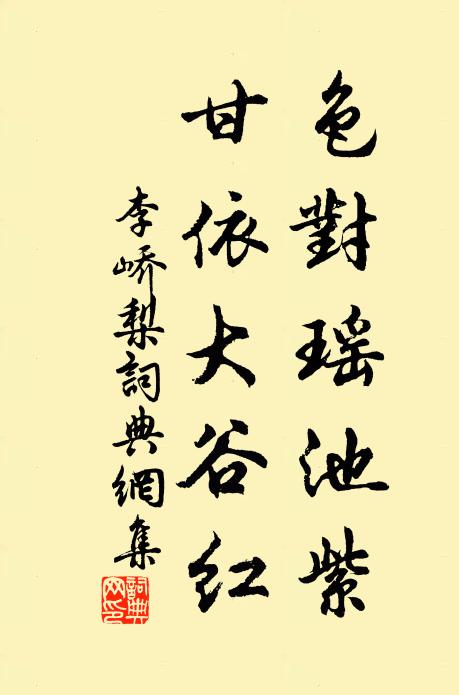 色對瑶池紫
甘依大谷红
李嶠梨詞典網集
詞典網印